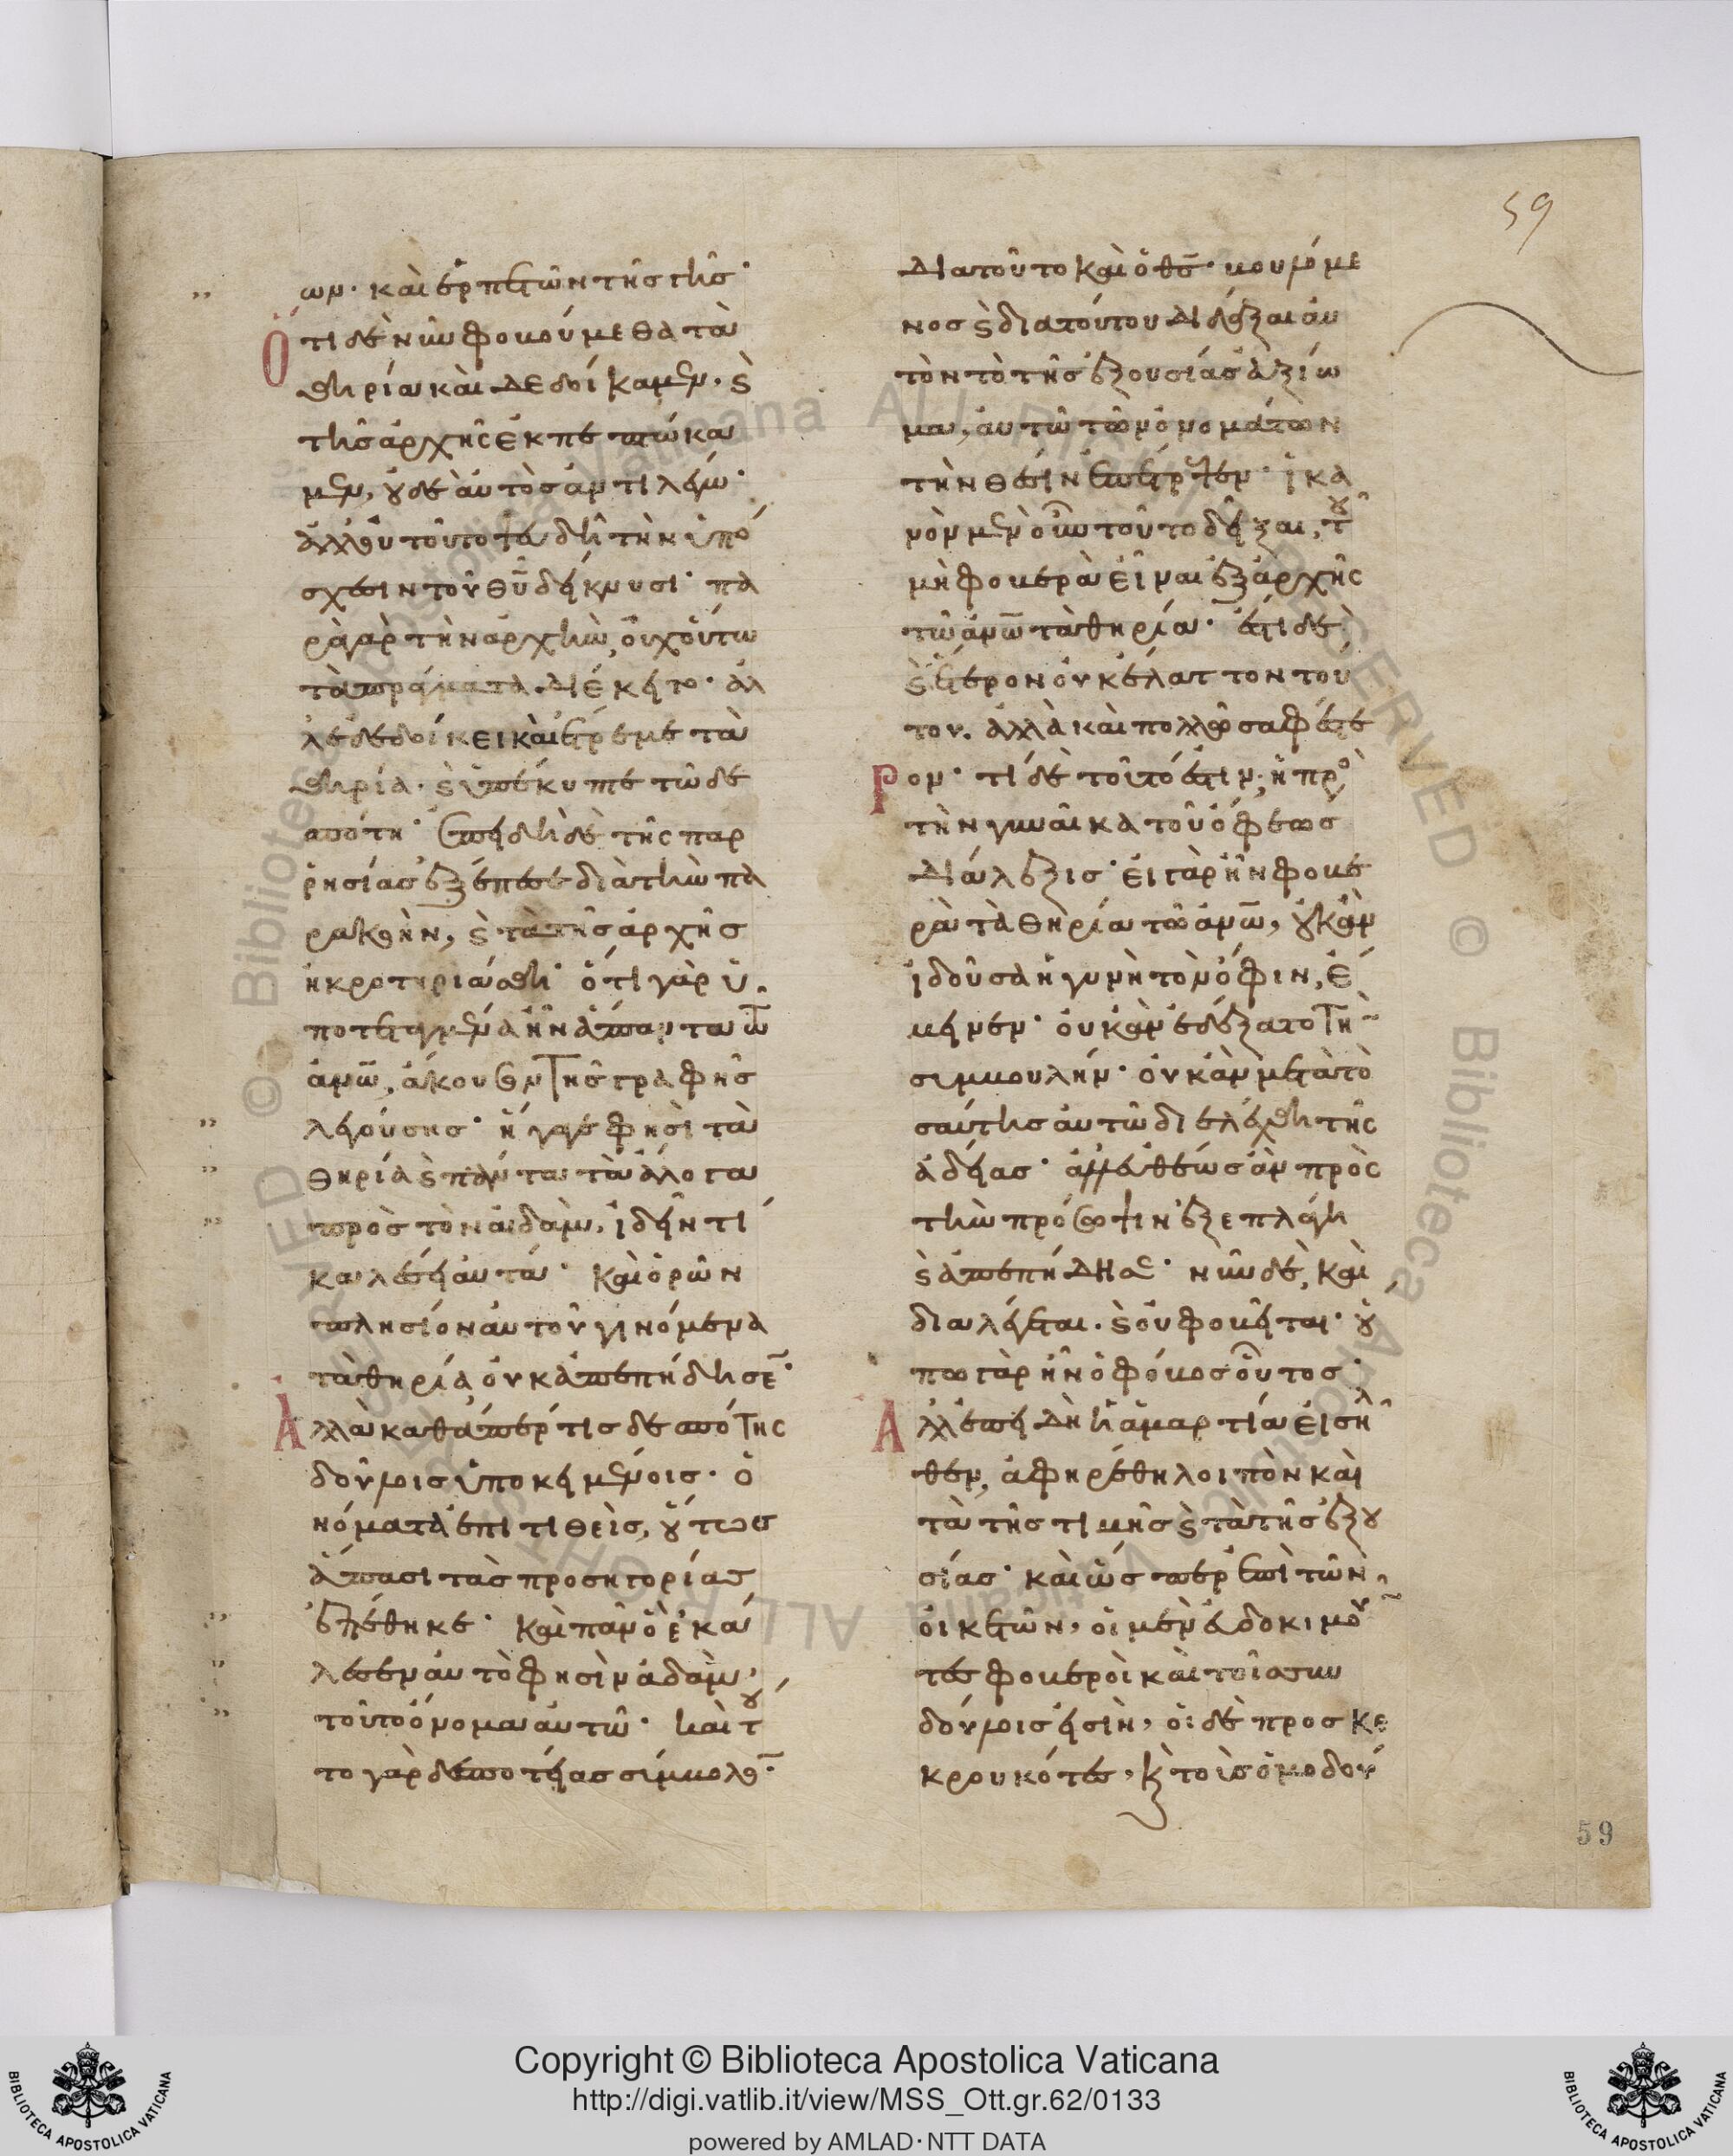 59
ων· καὶ ἑρπετῶν τῆς γῆς·
Ὅτι δὲ νῦν φοβούμεθα τὰ
θηρία καὶ δεδοίκαμεν, καὶ
τῆς ἀρχῆς ἐκπεπτώκα
μεν, οὐδὲ αὐτὸς ἀντιλέγω·
ἀλλ' οὐ τοῦτο ψευδῆ τὴν ὑπό
σχεσιν τοῦ θυ δείκνυσι· πα
ρὰ γὰρ τὴν ἀρχὴν, οὐχ οὕτω
τὰ πράγματα διέκειτο· ἀλ
λ' ἐδεδοίκει καὶ ἔτρεμε τὰ
θηρία· καὶ ὑπέκυπτε τῶ δε
σπότη· ἐπειδὴ δὲ τῆς παρ
ρησίας ἐξέπεσε διὰ τὴν πα
ρακοὴν, καὶ τὰ τῆς ἀρχῆς
ἠκρωτηριάσθη· ὅτι γὰρ ὑ
ποτεταγμένα ἦν ἅπαντα τῶ
ἀνω, ἄκουσον τῆς γραφῆς
λεγούσης· ἤγαγε φησὶ τὰ
θηρία καὶ πάντα τὰ ἄλογα
πρὸς τὸν ἀδὰμ, ἰδεῖν τί
καλέσει αὐτά· καὶ ὁρῶν
πλησίον αὐτοῦ γινόμενα
τὰ θηρία οὐκ ἀπεπήδησε·
Ἀλλὰ καθάπερ τις δεσπότης
δούλοις ὑποκειμένοις· ὀ
νόματα ἐπιτιθεὶς, οὕτως
ἅπασι τὰς προσηγορίας
ἐπέθηκε· καὶ πᾶν ὃ ἐκά
λεσεν αὐτὸ φησὶν ἀδὰμ,
τοῦτο ὄνομα αὐτῶ· καὶ τοῦ
το γὰρ δεσποτείας σύμβολο·
Διατοῦτο καὶ ὁ θς· βουλόμε
νος καὶ διὰ τούτου διδάξαι αὐ
τὸν τὸ τῆς ἐξουσίας ἀξίω
μα, αὐτῶ τῶν ὀνομάτων
τὴν θέσιν ἐπέτρεψεν· ἱκα
νὸν μὲν οὖν τοῦτο δεῖξαι, τοῦ
μὴ φοβερὰ εἶναι ἐξ ἀρχῆς
τῶ ἀνω τὰ θηρία· ἔστι δὲ
καὶ ἕτερον οὐκ ἔλαττον τού
του. ἀλλὰ καὶ πολλῶ σαφέστε
ρον· τί δὲ τοῦτό ἐστιν; ἡ πρὸ
τὴν γυναῖκα τοῦ ὄφεως
διάλεξις· εἰ γὰρ ἦν φοβε
ρὰ τὰ θηρία τῶ ἀνω, οὐκ ἂν
ἰδοῦσα ἡ γυνὴ τὸν ὄφιν, ἔ
μεινεν· οὐκ ἂν ἐδέξατο τὴ
συμβουλήν· οὐκ ἂν μετὰ το
σαύτης αὐτῶ διελέχθη τῆς
ἀδείας· ἀλλ' εὐθέως ἂν πρὸς
τὴν πρόσοψιν ἐξεπλάγη
καὶ ἀπεπήδησ· νῦν δὲ, καὶ
διαλέγεται. καὶ οὐ φοβεῖται· οὔ
πω γὰρ ἦν ὁ φόβος οὗτος·
Ἀλλ' ἐπειδὴ ἡ ἁμαρτία εἰσῆλ
θεν, ἀφηρέθη λοιπὸν καὶ
τὰ τῆς τιμῆς καὶ τὰ τῆς ἐξου
σίας· καὶ ὥσπερ ἐπὶ τῶν
οἰκετῶν, οἱ μὲν εὐδοκιμοῦ
τες φοβεροὶ καὶ τοῖς συν
δούλοις εἰσὶν, οἱ δὲ προσκε
κρουκότες, καὶ τοὺς ὁμοδού
59
Copyright © Biblioteca Apostolica Vaticana
http://digi.vatlib.it/view/MSS_Ott.gr.62/0133
powered by AMLAD·NTT DATA